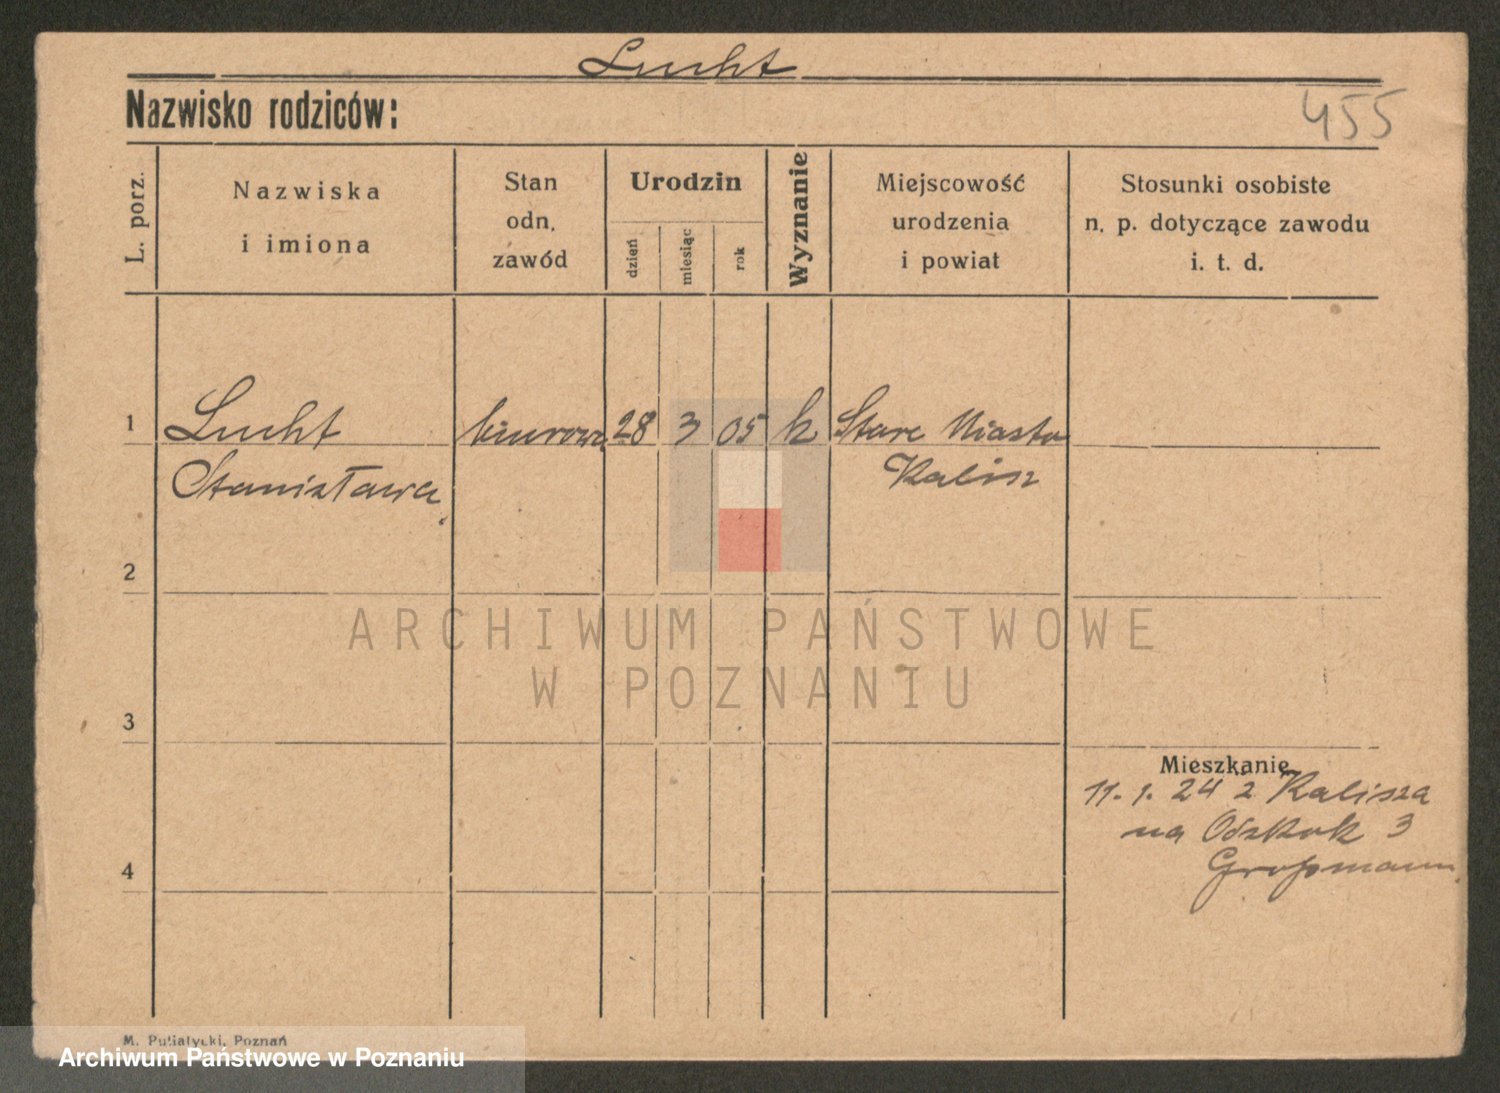 Lucht
Nazwisko rodziców:
455
L. porz.
Nazwiska
i imiona
Stan
odn.
zawód
Urodzin
dzień
miesiąc
rok
Wyznanie
Miejscowość
urodzenia
i powiat
Stosunki osobiste
n. p. dotyczące zawodu
i. t. d.
1 Lucht biurowa 28 3 05 k Stare Miasto
Stanisława Kalisz
2
ARCHIWUM PAŃSTWOWE
W POZNANIU
3
Mieszkanie
11. 1. 24 z Kalisza
na 3
Großmann
4
M. Putiatycki, Poznań
Archiwum Państwowe w Poznaniu